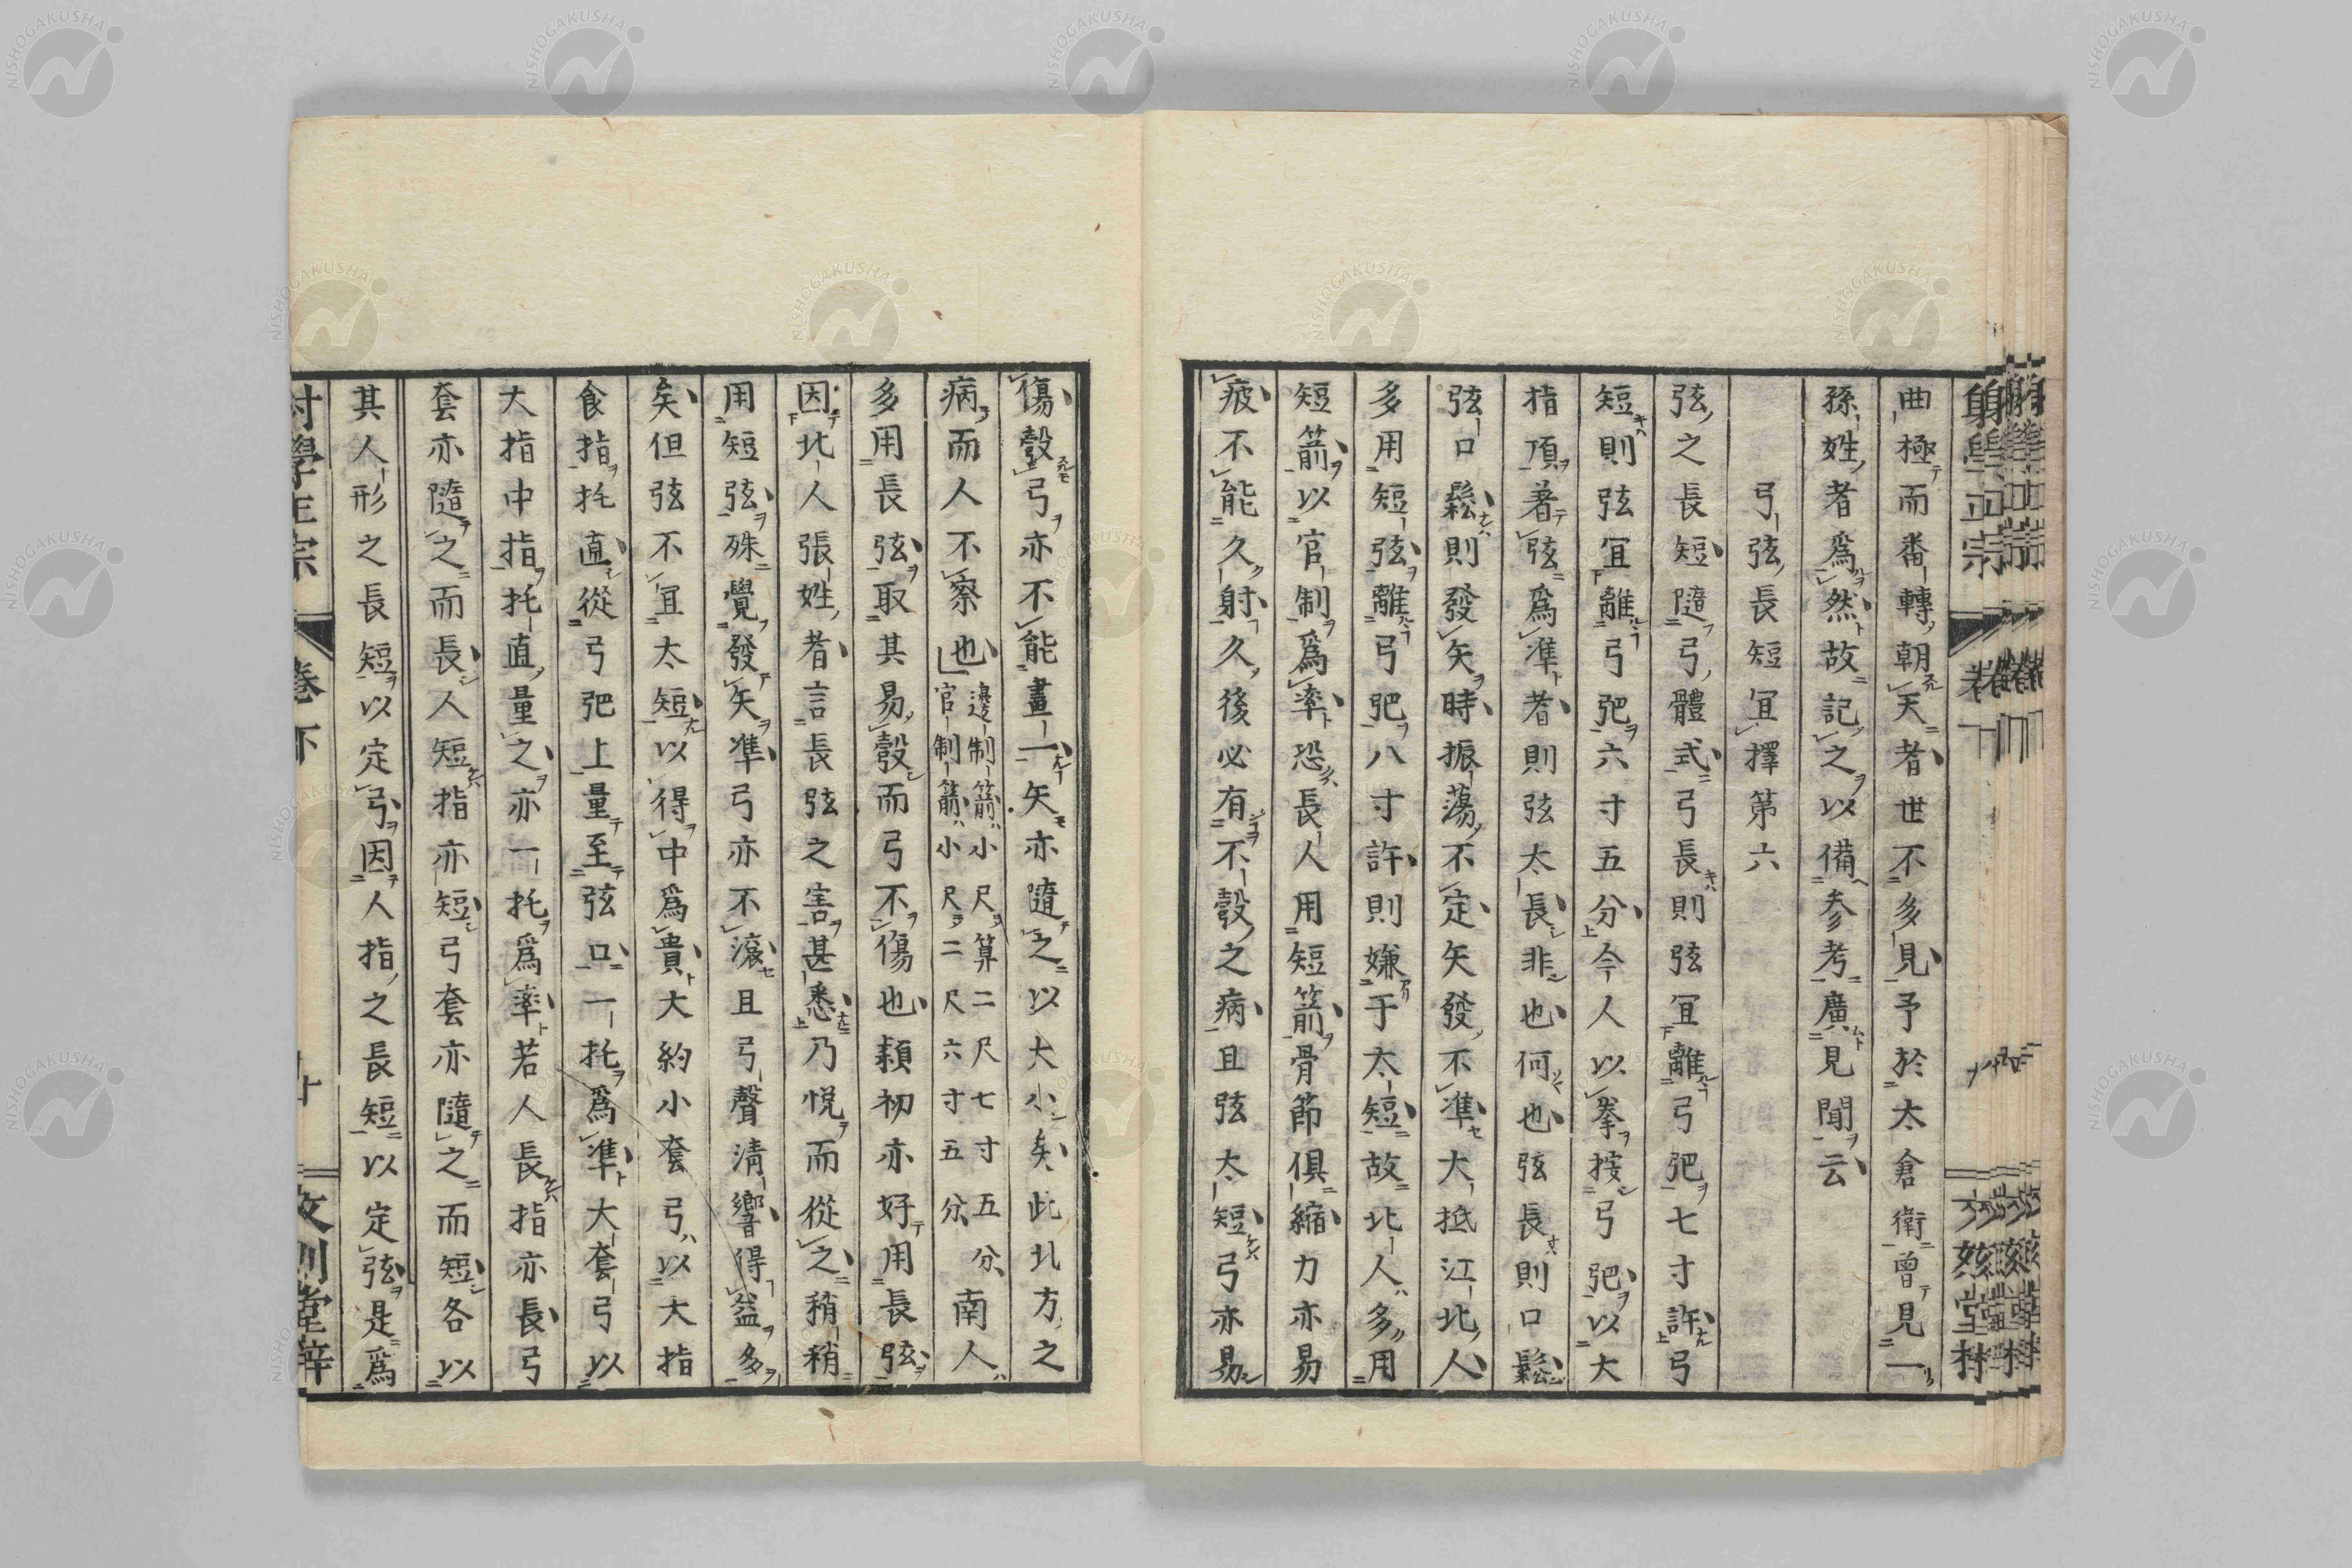 曲極而番轉朝天者世不多見予於太倉衛曾見一
孫姓者爲然故記之以備参考廣見聞云
弓弦長短宜擇第六
弦之長短隨弓體式弓長則弦宜離弓弝七寸許弓
短則弦宜離弓弝六寸五分今人以拳按弓弝以大
指頂著弦爲準者則弦太長非也何也弦長則口鬆
弦口鬆則發矢時振蕩不定矢發不準大抵江北人
多用短弦離弓弝八寸許則嫌于太短故北人多用
短箭以官制爲率恐長人用短箭骨節俱縮力亦易
疲不能久射久後必有不彀之病且弦太短弓亦易
傷彀弓亦不能畫一矢亦隨之以大小矣此北方之
病而人不察也
邉制箭小尺算二尺七寸五分
官制箭小尺二尺六寸五分
南人
多用長弦取其易彀而弓不傷也頴初亦好用長弦
因北人張姓者言長弦之害甚悉乃悦而從之稍稍
用短弦殊覺發矢準弓亦不滚且弓聲清響得益多
矣但弦不宜太短以得中爲貴大約小套弓以大指
食指托直從弓弝上量至弦口一托爲準大套弓以
大指中指托直量之亦一托爲率若人長指亦長弓
套亦隨之而長人短指亦短弓套亦隨之而短各以
其人形之長短以定弓因人指之長短以定弦是爲